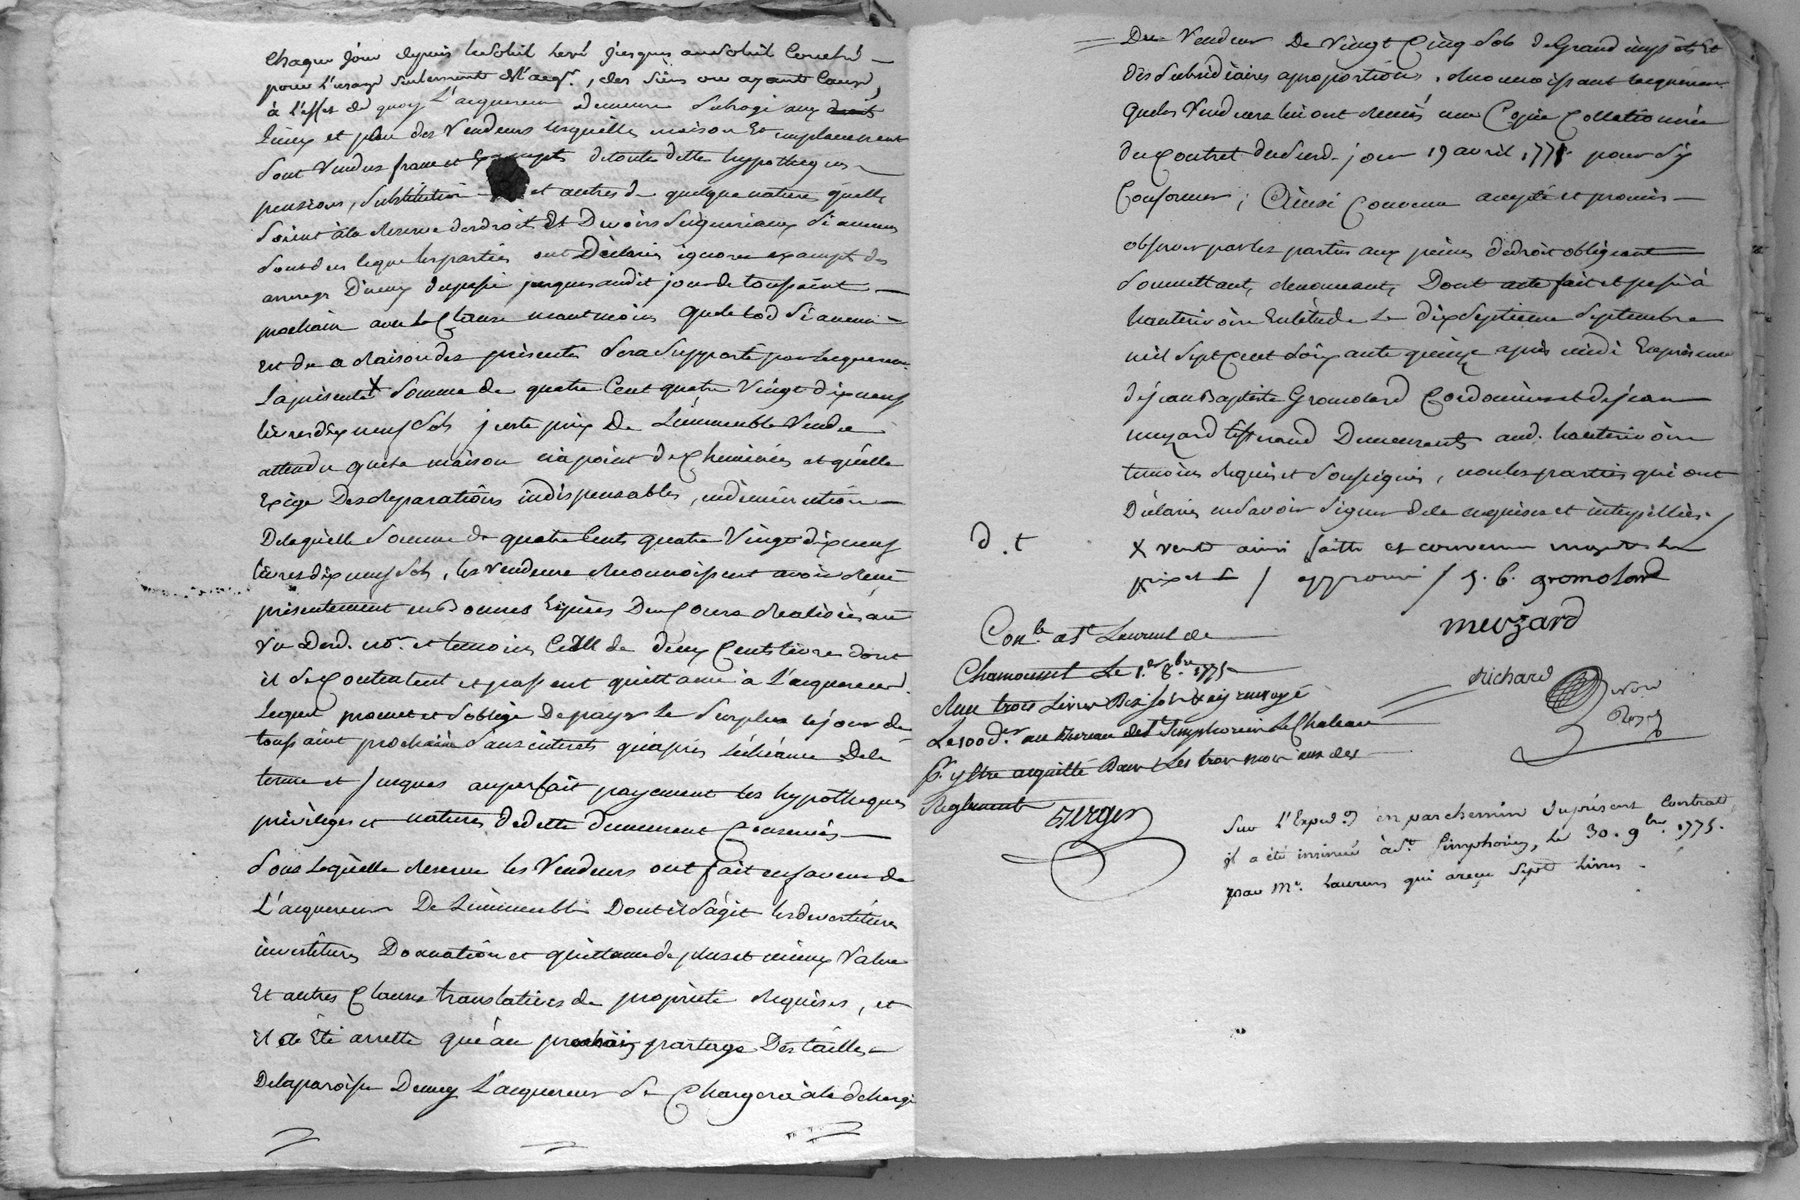 Chaque jour depuis le soleil levé jusques au soleil Couché
pour l'usage seulement de l'acqr., des siens ou ayants Cause,
à l'effet de quoy L'acquereur Demeure subrogé aux droit
lieux et place des Vendeurs lesquelles maison Et emplacement
sont Vendus francs et exempts de toute dette hypotheques
pensions, substitution et autres de quelque nature quelles
soient à la Reserve des droits Et Devoirs seigneuriaux si aucuns
sont dus le que les parties ont Déclaré ignorer exempt des
arrerages D'iceux du passé jusques audit jour de toussaint
prochain avec la Clause neantmoins que le lod si aucun
est du a Raison des presentes sera supporté par lacquereur
La présente X somme de quatre Cent quatre Vingt dix neuf
livres dix neuf sols juste prix De L'immeuble Vendu
attendu que la maison n'a point de Cheminées et qu'elle
Exige Des Reparations indispensables,
De laquelle somme de quatre Cents quatre Vingt dix neuf
livres dix neuf sols, les vendeurs Reconnoissent avoir Reçu
présentement en Bonnes Espèces De Cours Realisées au
vu Dud. nore. et temoins Celle de deux Cents livres dont
ils se Contentent et passent quittance à L'acquereur
Lequel promet et s'oblige De payer Le Surplus le jour de
toussaint prochaine sans interets qu'après l'échéance De le
terme et jusques au parfait payement les hypotheques
privilèges et natures de dette demeurent Conservés
sous laquelle Reserve les Vendeurs ont fait en faveur de
L'acquereur De L'immeuble Dont il s'agit les devestitures
investitures Donnation et quittance de plus et mieux Value
Et autres Clauses translatives de propriété Requises, et
il a Eté arretté que au prochain partage Des tailles
De la paroisse Demey L'acquereur se Chargera à la decharge
Du Vendeur De Vingt Cinq sols de Grand impots Et
des subsidiaires aproportions, Reconnoissant lacquereur
que les Vendeurs lui ont Remis une Copie Collationnée
du Contrat du susd. jour 19 avril 1771 pour s'y
Conformer ; Ainsi Convenu accepté et promis
observer par les parties aux peines de droit obligeant
soumettant, Renonceant, Dont acte fait et passé à
hauterivoire En létude Le dix septieme Septembre
mil sept Cent soixante quinze après midi En présence
de jean Baptiste Gromolard Cordonnier et de jean
muzard tisserand Demeurants aud. hauterivoire
temoins Requis et soussignés, non les parties qui ont
Déclaré ne savoir signer de ce enquises et interpellées.
D. t X vente ainsi faitte et convenue moyennant le
prix et / approuvé / J. B. gromolard
meuzard
Richard
Conle. a St Laurent de
Chamousset Le 1er 8bre 1775
Reçu trois Livres Dix sols Et renvoyé
Le 100 de. au Bureau de St Simphorien Le Chateau
P. y Etre acquitté Dans Les trois mois aux des
Reglements Berger
Sur l'Exped.on en parchemin du présent Contrat,
il a été insinué à St. Simphorien, le 30. 9bre. 1775.
par Mr. Laurens qui a reçu Sept livres